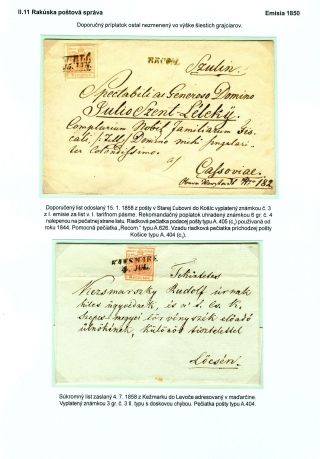 II.11 Rakúska poštová správa
Emisia 1850
Doporučný príplatok ostal nezmenený vo výške šiestich grajciarov.
RECOM.
Szulin.
Spectabili ac Generoso Domino
Julio Szent-
Complurium Nobil Familiarum Fis-
Domino mihi
a/
Cassoviae
182
Doporučený list odoslaný 15. 1. 1858 z pošty v Starej Ľubovni do Košíc vyplatený známkou č. 3
z I. emisie za list v I. tarifnom pásme. Rekomandačný poplatok uhradený známkou 6 gr. č. 4
nalepenou na pečatnej strane listu. Riadková pečiatka podacej pošty typu A. 405 (c₁) používaná od
roku 1844. Pomocná pečiatka „Recom." typu A.626. Vzadu riadková pečiatka príchodzej pošty
Košice typu A. 404 (c₁).
KÄSMARK
4. JUL.
Tekintetes
Rudolf úrnak
hites ügyvédnek, és a' cs. K.
Szepes megyei törvényszék előadó
ülnökének, különös tisztelettel
Lőcsén.
Súkromný list zaslaný 4. 7. 1858 z Kežmarku do Levoče adresovaný v maďarčine.
Vyplatený známkou 3 gr. č. 3 II. typu s doskovou chybou. Pečiatka pošty typu A.404.